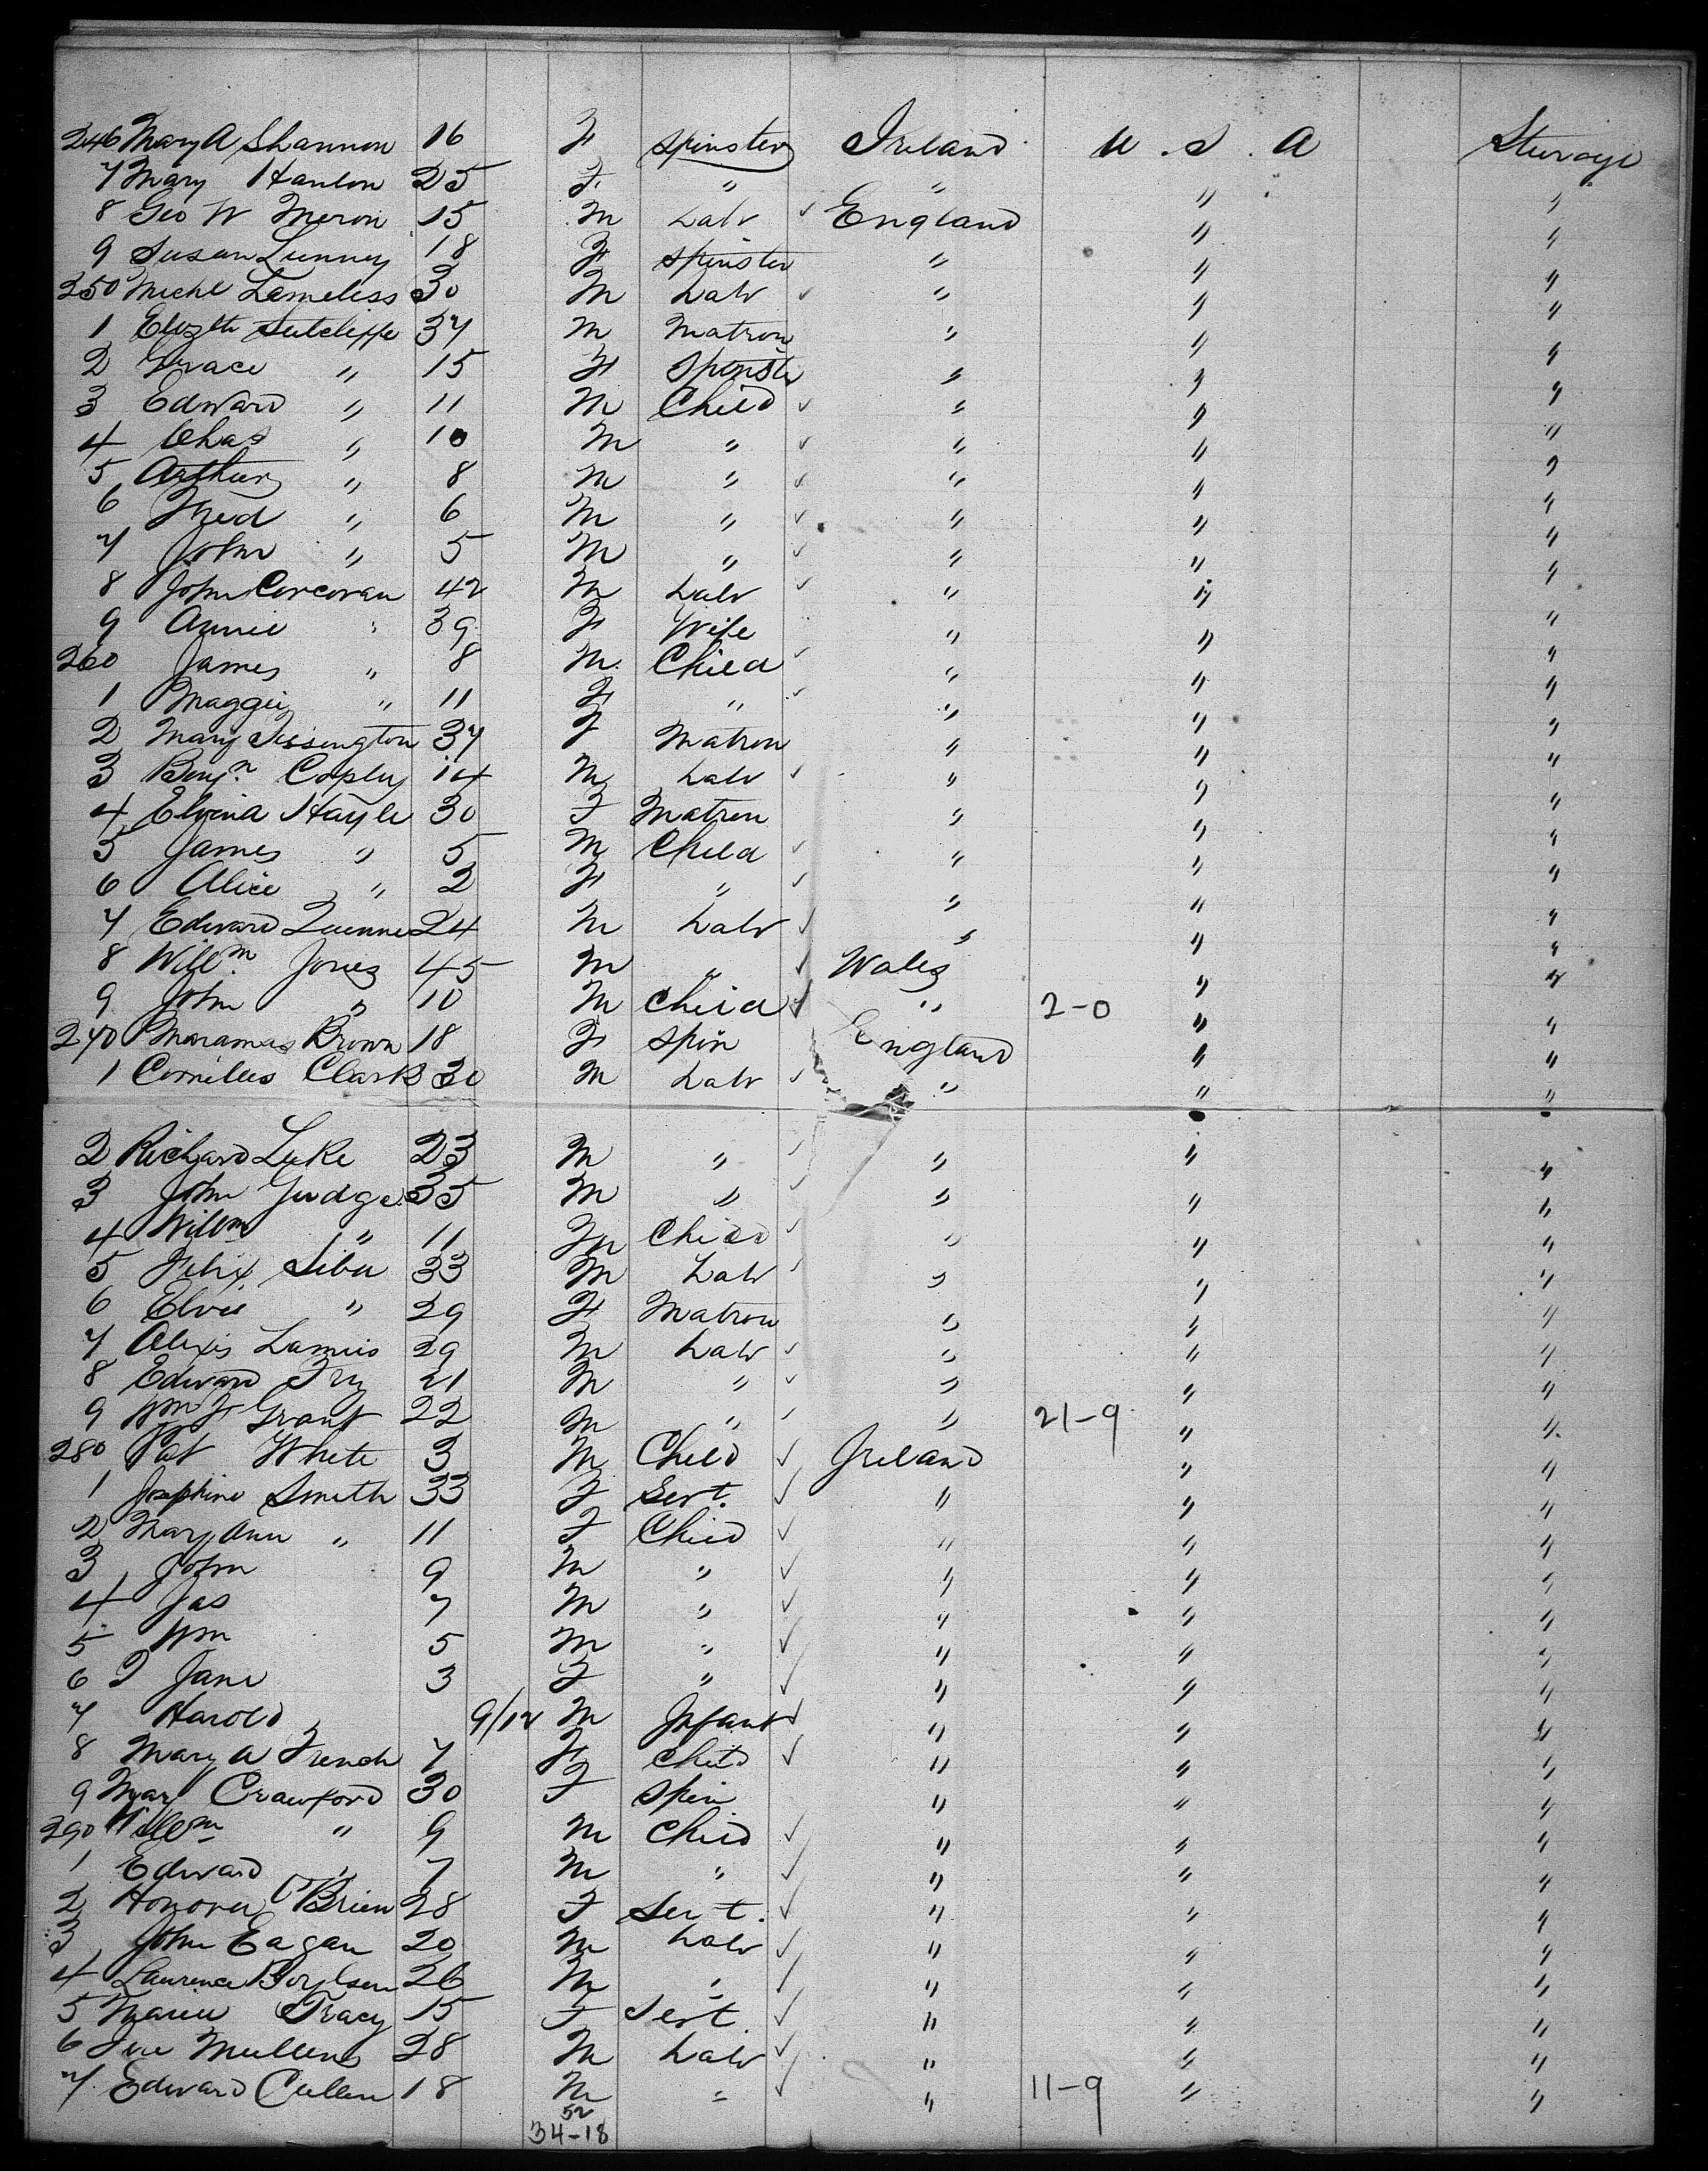 246 Mary A Shannon 16 F Spinster Ireland U.S.A Steerage
7 Mary Hanlon 25 F " " " "
8 Geo W Meron 15 M Labr ✓ England " "
9 Susan Lunney 18 F Spinster " " "
250 Michl Lameliss 30 M Labr ✓ " " "
1 Elizth Sutcliffe 37 M Matron " " "
2 Grace " 15 F Spinster " " "
3 Edward " 11 M Child ✓ " " "
4 Chas " 10 M " ✓ " " "
5 Arthur " 8 M " ✓ " " "
6 Fred " 6 M " ✓ " " "
7 John " 5 M " ✓ " " "
8 John Corcoran 42 M Labr ✓ " " "
9 Annie " 39 F Wife " " "
260 James " 8 M Child ✓ " " "
1 Maggie " 11 F " ✓ " " "
2 Mary Tissington 37 F Matron " " "
3 Benjn Copley 14 M Labr ✓ " " "
4 Elvina Hayle 30 F Matron " " "
5 James " 5 M Child ✓ " " "
6 Alice " 2 F " ✓ " " "
7 Edward 24 M Labr ✓ " " "
8 Willm Jones 45 M " ✓ Wales " "
9 John " 10 M Child ✓ " 2-0 " "
270 Brown 18 F Spin England " "
1 Cornilus Clark 30 M Labr ✓ " " "
2 Richard Luke 23 M " ✓ " " "
3 John Judge 35 M " ✓ " " "
4 Willm " 11 M Child ✓ " " "
5 Felix 33 M Labr ✓ " " "
6 " 29 F Matron " " "
7 Alexis 29 M Labr ✓ " " "
8 Edward Fry 21 M " ✓ " " "
9 Wm F Grant 22 M " ✓ " 21-9 " "
280 Pat White 3 M Child ✓ Ireland " "
1 Josephine Smith 33 F Servt. ✓ " " "
2 Mary Ann " 11 F Child ✓ " " "
3 John 9 M " ✓ " " "
4 Jas 7 M " ✓ " " "
5 Wm 5 M " ✓ " " "
6 Jane 3 F " ✓ " " "
7 Harold 9/12 M Infant ✓ " " "
8 Mary A French 7 F Child ✓ " " "
9 Mary Crawford 30 F Spin " " "
290 Willm " 9 M Child ✓ " " "
1 Edward " 7 M " ✓ " " "
2 Honora O'Brien 28 F Servt. ✓ " " "
3 John Eagan 20 M Labr ✓ " " "
4 Laurence 26 M " ✓ " " "
5 Tracy 15 F Servt. ✓ " " "
6 Mullens 28 M Labr ✓ " " "
7 Edward Cullen 18 M " ✓ " 11-9 " "
52
34-18